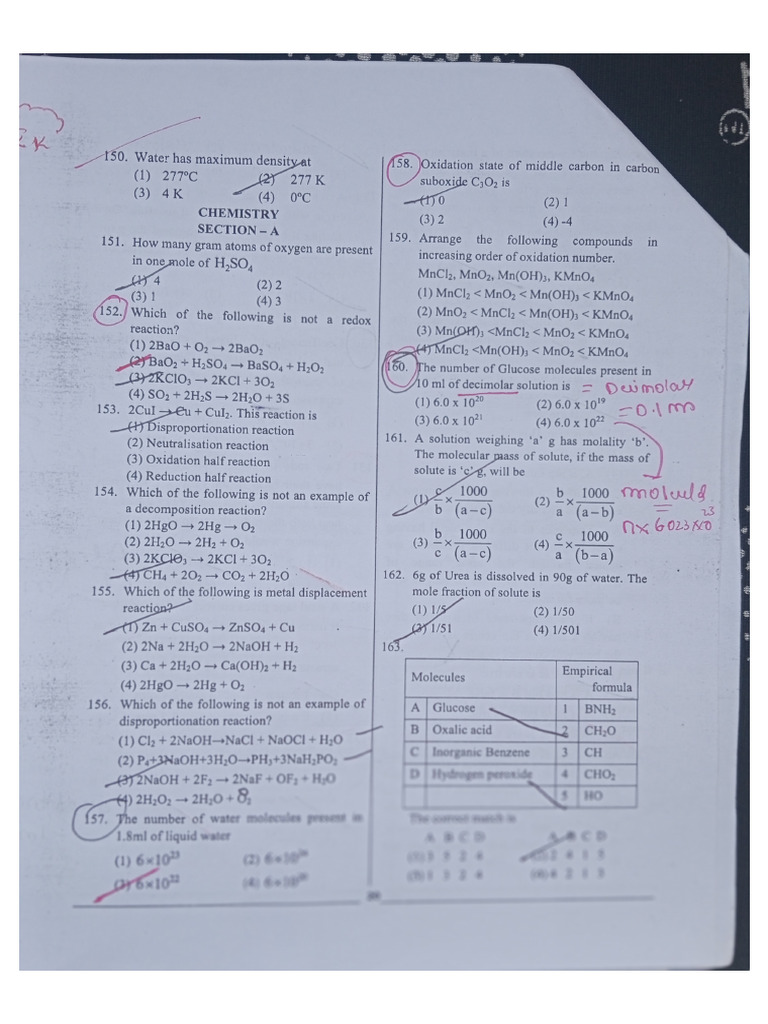 K
150. Water has maximum density at
(1) 277°C (2) 277 K
(3) 4 K (4) 0°C
CHEMISTRY
SECTION – A
151. How many gram atoms of oxygen are present
in one mole of H₂SO₄
(1) 4 (2) 2
(3) 1 (4) 3
152. Which of the following is not a redox
reaction?
(1) 2BaO + O₂ → 2BaO₂
(2) BaO₂ + H₂SO₄ → BaSO₄ + H₂O₂
(3) 2KClO₃ → 2KCl + 3O₂
(4) SO₂ + 2H₂S → 2H₂O + 3S
153. 2CuI → Cu + CuI₂. This reaction is
(1) Disproportionation reaction
(2) Neutralisation reaction
(3) Oxidation half reaction
(4) Reduction half reaction
154. Which of the following is not an example of
a decomposition reaction?
(1) 2HgO → 2Hg → O₂
(2) 2H₂O → 2H₂ + O₂
(3) 2KClO₃ → 2KCl + 3O₂
(4) CH₄ + 2O₂ → CO₂ + 2H₂O
155. Which of the following is metal displacement
reaction?
(1) Zn + CuSO₄ → ZnSO₄ + Cu
(2) 2Na + 2H₂O → 2NaOH + H₂
(3) Ca + 2H₂O → Ca(OH)₂ + H₂
(4) 2HgO → 2Hg + O₂
156. Which of the following is not an example of
disproportionation reaction?
(1) Cl₂ + 2NaOH→NaCl + NaOCl + H₂O
(2) P₄+3NaOH+3H₂O→PH₃+3NaH₂PO₂
(3) 2NaOH + 2F₂ → 2NaF + OF₂ + H₂O
(4) 2H₂O₂ → 2H₂O + O₂
157. The number of water molecules present in
1.8ml of liquid water
(1) 6×10²³ (2) 6×10²⁴
(3) 6×10²² (4) 6×10²⁰
158. Oxidation state of middle carbon in carbon
suboxide C₃O₂ is
(1) 0 (2) 1
(3) 2 (4) -4
159. Arrange the following compounds in
increasing order of oxidation number.
MnCl₂, MnO₂, Mn(OH)₃, KMnO₄
(1) MnCl₂ < MnO₂ < Mn(OH)₃ < KMnO₄
(2) MnO₂ < MnCl₂ < Mn(OH)₃ < KMnO₄
(3) Mn(OH)₃ <MnCl₂ < MnO₂ < KMnO₄
(4) MnCl₂ <Mn(OH)₃ < MnO₂ < KMnO₄
160. The number of Glucose molecules present in
10 ml of decimolar solution is = Decimolar
(1) 6.0 x 10²⁰ (2) 6.0 x 10¹⁹ = 0.1 m
(3) 6.0 x 10²¹ (4) 6.0 x 10²²
161. A solution weighing ‘a’ g has molality ‘b’.
The molecular mass of solute, if the mass of
solute is ‘c’ g, will be
(1) c/b × 1000/(a−c) (2) b/a × 1000/(a−b)
= n× 6023×10²³
(3) b/c × 1000/(a−c) (4) c/a × 1000/(b−a)
162. 6g of Urea is dissolved in 90g of water. The
mole fraction of solute is
(1) 1/5 (2) 1/50
(3) 1/51 (4) 1/501
163.
Molecules Empirical
formula
A Glucose 1 BNH₂
B Oxalic acid 2 CH₂O
C Inorganic Benzene 3 CH
D Hydrogen peroxide 4 CHO₂
5 HO
The correct match is
A B C D A B C D